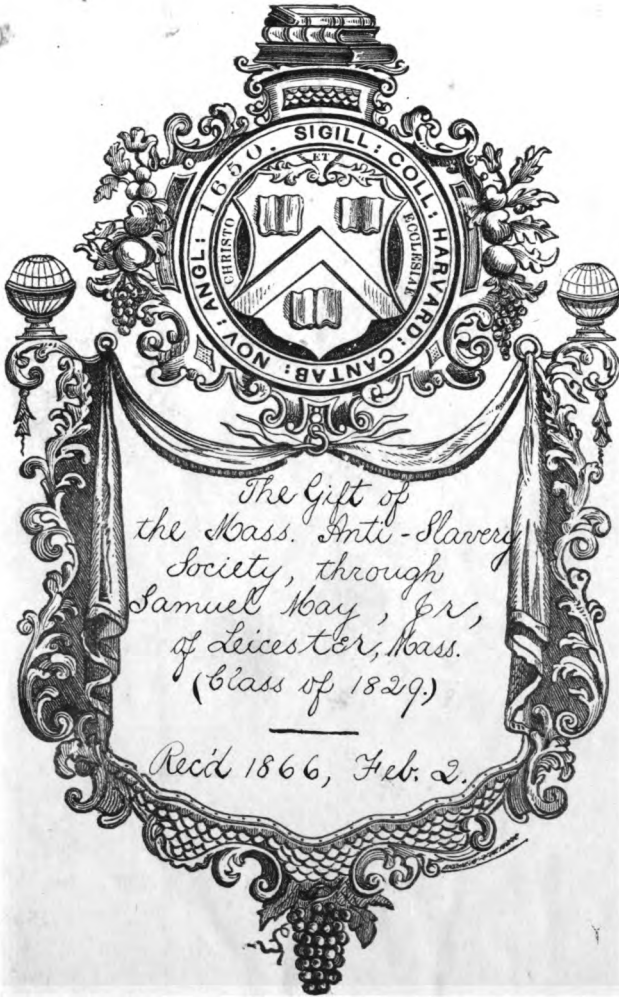 SIGILL: COLL: HARVARD: CANTAB: NOV: ANGL: 1650.
CHRISTO
ET
ECCLESIAE
The Gift of
the Mass. Anti-Slavery
Society, through
Samuel May, Jr,
of Leicester, Mass.
(Class of 1829.)
Rec'd 1866, Feb. 2.